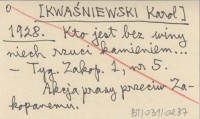 0
[KWAŚNIEWSKI Karol]
1928. Kto jest bez winy
niech rzuci kamieniem...
– Tyg. Zakop. 1, nr 5.
Akcja prasy przeciw Za-
kopanemu.